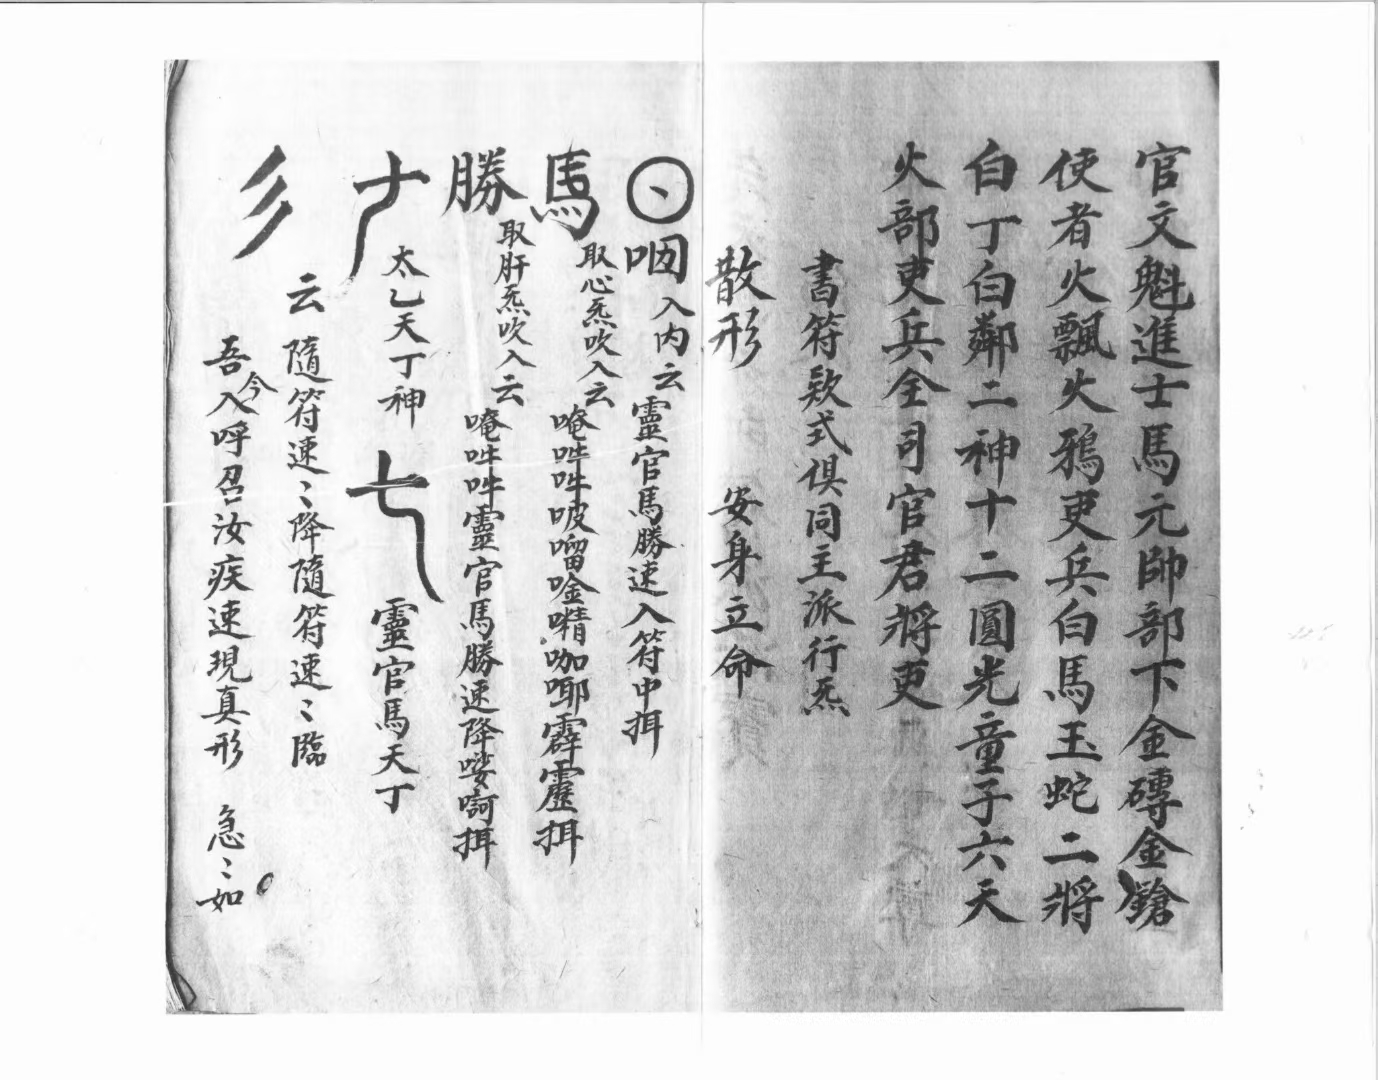 官文魁進士馬元帥部下金磚金鎗
使者火飄火鴉吏兵白馬玉蛇二將
白丁白鄰二神十二圓光童子六天
火部吏兵全司官君將吏
書符欵式俱同主派行炁
散形　安身立命
咽入内云靈官馬勝速入符中挕
馬取心炁吹入云唵吽吽吸㗰唫囐咖㖿霹靂挕
勝取肝炁吹入云唵吽吽靈官馬勝速降𠹌訶挕
太乙天丁神　七　靈官馬天丁
彡云隨符速〻降隨符速〻臨
吾今入呼召汝疾速現真形　急〻如